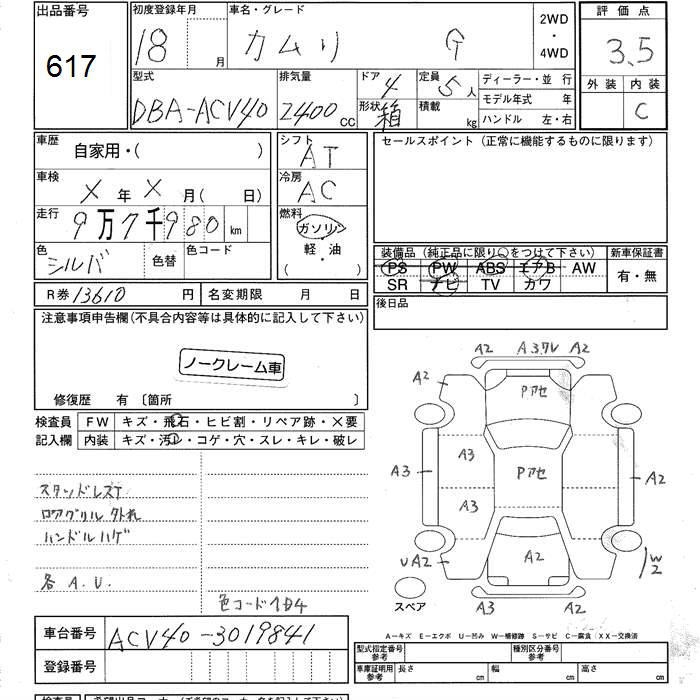 出品番号 617
初度登録年月 18 月
車名・グレード カムリ G
2WD・4WD
評価点 3.5
型式 DBA-ACV40
排気量 2400 cc
ドア 4 形状 箱
定員 5 人 積載 kg
ディーラー・並 行
モデル年式 年
ハンドル 左・右
外装 内装 C
車歴 自家用・( )
シフト AT
セールスポイント (正常に機能するものに限ります)
車検 X 年 X 月( 日)
冷房 AC
走行 9万7千980 km
燃料 ガソリン 軽・油 ( )
色 シルバ 色替 色コード
装備品 (純正品に限り○をつけて下さい) 新車保証書
PS PW ABS エアB AW 有・無
SR ナビ TV カワ
R券 13610 円 名変期限 月 日
後日品
注意事項申告欄(不具合内容等は具体的に記入して下さい)
ノークレーム車
修復歴 有 〔箇所 〕
検査員記入欄
FW キズ・飛石・ヒビ割・リペア跡・X要
内装 キズ・汚レ・コゲ・穴・スレ・キレ・破レ
スタッドレスT
ロアグリル外れ
ハンドルハゲ
各 A.U.
色コード1D4
A2 A3.7V A2
A2 Pアセ A2
A3 A3 Pアセ A2
A3
UA2 A2 W2
スペア A3 A2
A-キズ E-エクボ U-凹み W-補修跡 S-サビ C-腐食 XX-交換済
車台番号 ACV40-3019841
登録番号
型式指定番号 参考 種別区分番号 参考
車庫証明用 参考 長さ cm 幅 cm 高さ cm